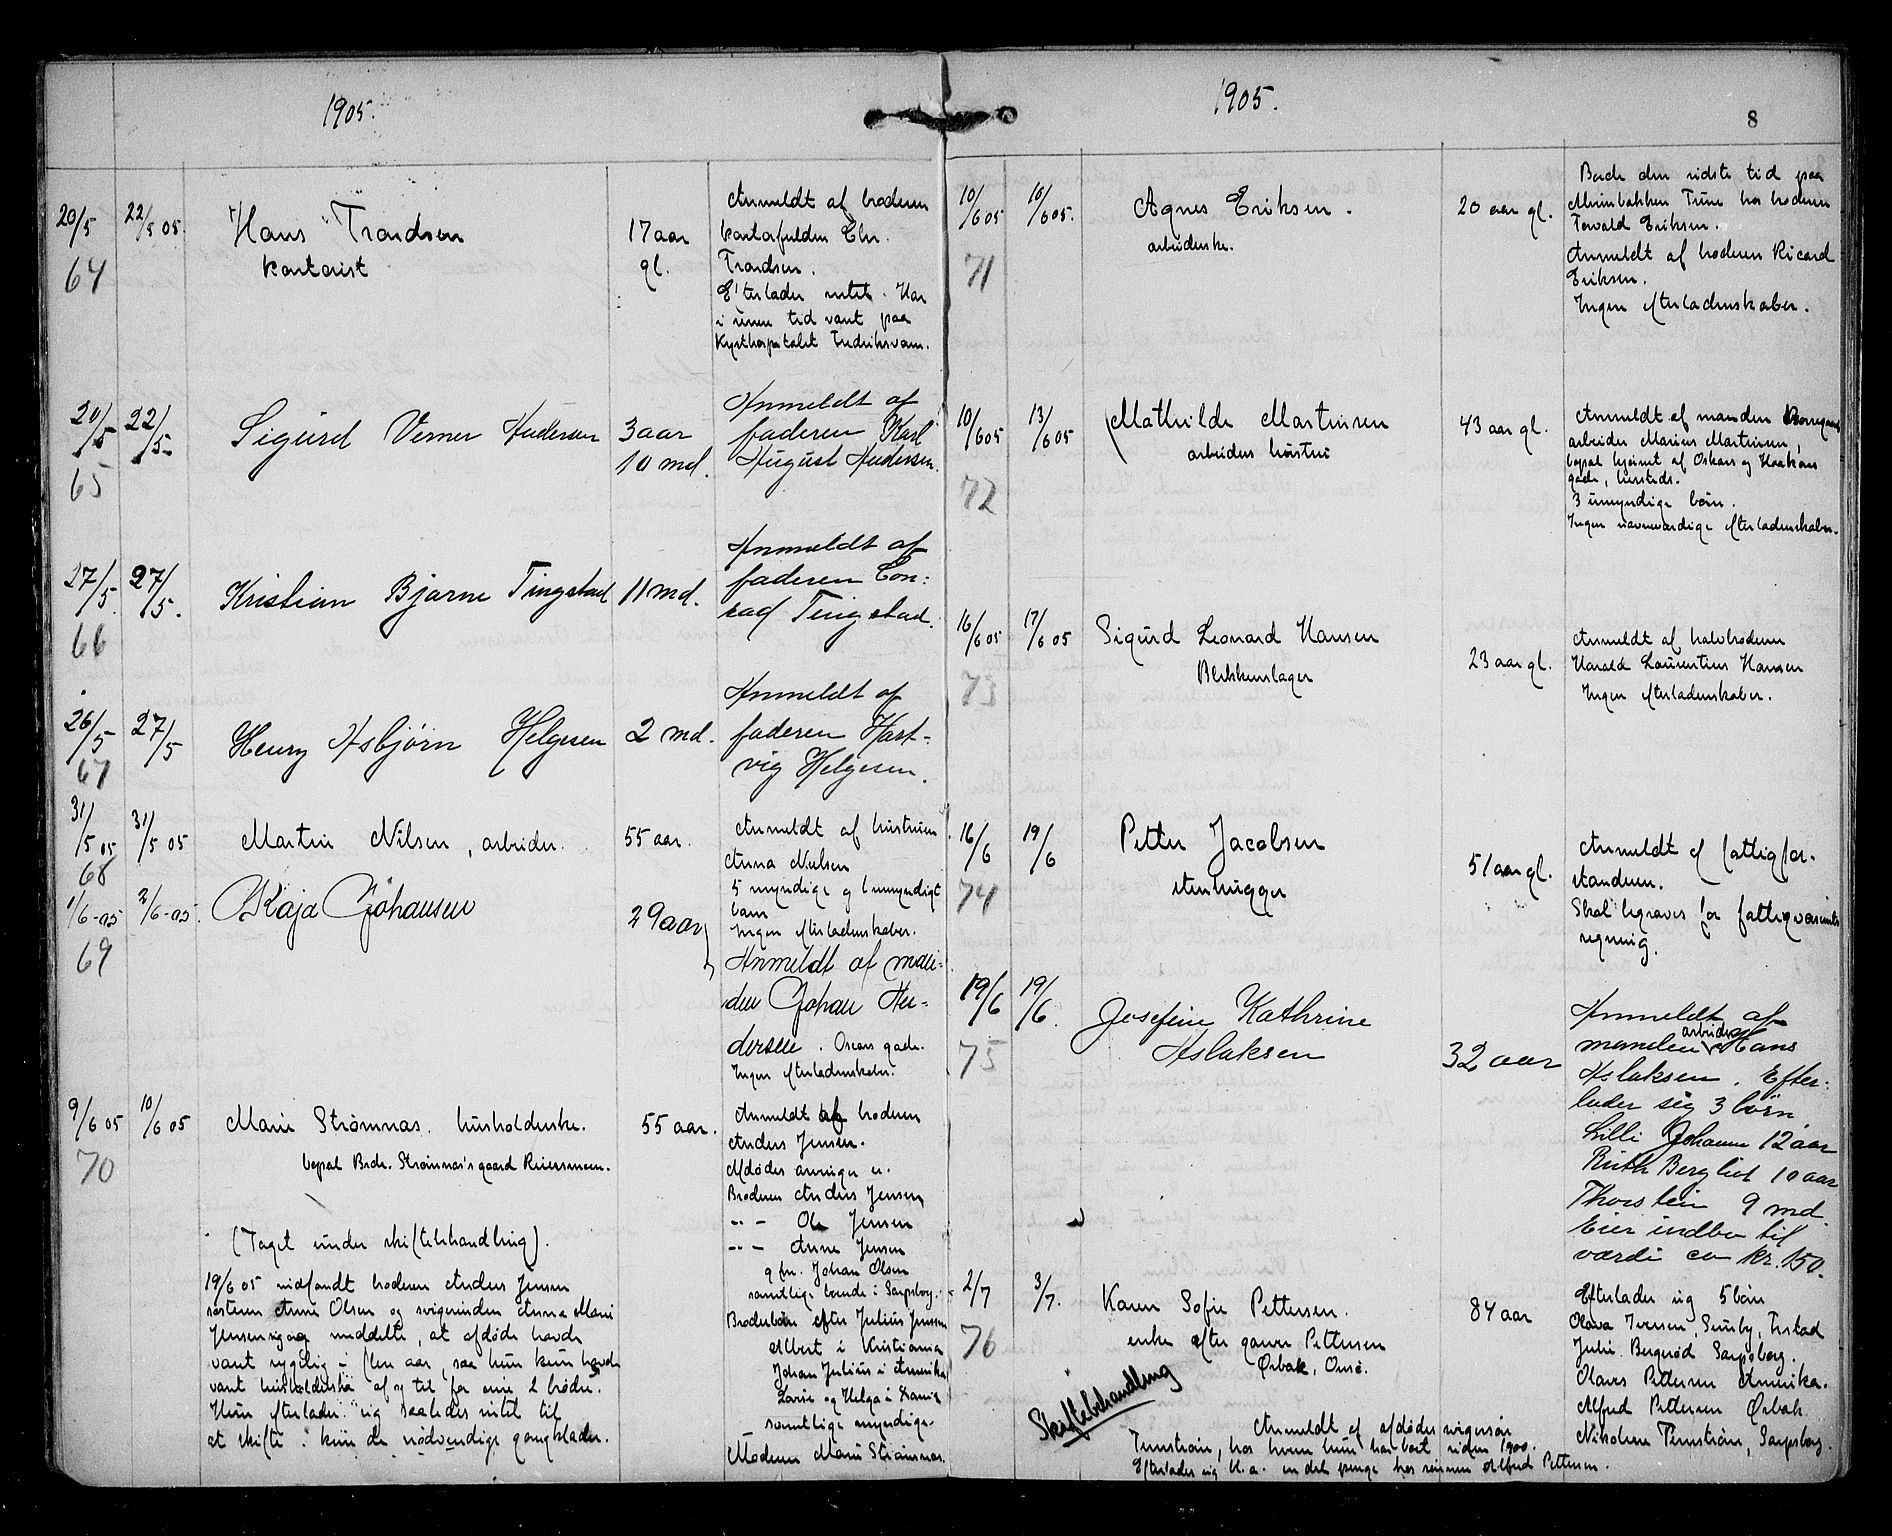 1905.
20/5 22/5 05. Hans Trandsen
17 aar
64 kontorist
gl.
Anmeldt af broderen
Chr.
Trandsen.
Efterlader intet. Har
i tid været paa
Kysthospitalet Fredriksværn.
20/5 22/5 Sigurd Verner Andersen 3 aar
10 md.
65
Anmeldt af
faderen Karl
August Andersen.
27/5. 27/5. Kristian Bjarne Tingstad 11 md.
66
Anmeldt af
faderen Con:
rad Tingstad.
26/5 27/5 Henry Asbjørn Helgesen 2 md.
67
Anmeldt af
faderen Hart-
vig Helgesen.
31/5 05 31/5 05 Martin Nilsen, arbeider. 55 aar.
68
Anmeldt af hustruen
Anna Nielsen
5 myndige og 1 umyndigt
barn
Ingen efterladenskaber.
1/6-05 2/6-05. Kaja Johansen
29 aar
69
Anmeldt af man-
den Johan An-
dersen. Oscars gade.
Ingen efterladenskaber.
9/6 05 10/6 05 Marie Strømnæs. husholderske. 55 aar.
70 bopæl Brdr. Strømnæs's gaard
Anmeldt af broderen
Anders Jensen.
Afdødes arvinger er.
Broderen Anders Jensen
" - Ole Jensen
" - Anne Jensen
g. m. Johan Olsen
samtlige boende i Sarpsborg.
Broderbørn efter Julius Jensen
Albert i Kristiania
Johan Julius i Amerika
og Helga i
samtlige myndige.
Moderen Marie Strømnæs.
(Taget under skiftebehandling).
19/6 05 indfandt broderen Anders Jensen
søsteren Anne Olsen og svigerinden Anna Marie
Jensen sig og meddelte, at afdøde havde
vært sygelig i flere aar, saa hun kun havde
vært husholderske af og til for sine 2 brødre.
Hun efterlader sig saaledes intet til
at skifte. kun de nødvendige gangklæder.
1905.
8
10/6 05 16/6 05. Agnes Eriksen. 20 aar gl.
71 arbeiderske.
Boede den sidste tid paa
Tune hos broderen
Torvald Eriksen.
Anmeldt af broderen Ricard
Eriksen.
Ingen efterladenskaber.
10/6 05 13/6 05 Mathilde Martinsen 43 aar gl.
72 arbeiders hustru
Anmeldt af manden
arbeider Marius Martinsen,
bopæl hjørnet af Oskars og Haakons
gade, hersteds.
3 umyndige børn.
Ingen nævneværdige efterladenskaber.
16/6 05 17/6 05 Sigurd Leonard Hansen
73 Blikkenslager
23 aar gl.
Anmeldt af halvbroderen
Harald Laurentius Hansen
Ingen efterladenskaber.
16/6 19/6 Petter Jacobsen
74 stenhugger
51 aar gl.
Anmeldt af fattigfor-
standeren.
Skal begraves for fattigvæsenets
regning.
19/6 19/6. Josefine Kathrine
75 Aslaksen
32 aar
Anmeldt af
manden arbeider Hans
Aslaksen. Efter-
lader sig 3 børn
Lilli Johanne 12 aar
Ruth Bergliot 10 aar
Thorstein 9 md.
Eier indbo til
værdi ca kr. 150.
2/7 3/7. Karen Sofie Pettersen. 84 aar
76 enke efter Pettersen
Ørbak, Onsø.
Skiftebehandling
Efterlader sig 5 børn
Olava Iversen,
Julie Sarpsborg.
Olaves Pettersen Amerika.
Alfred Pettersen Ørbak
Nikoline Ternstrøm, Sarpsborg.
Anmeldt af afdødes svigersøn
Ternstrøm, hos hvem hun har boet siden 1900.
Efterlader sig bl. a. en del penge hos sønnen Alfred Pettersen.